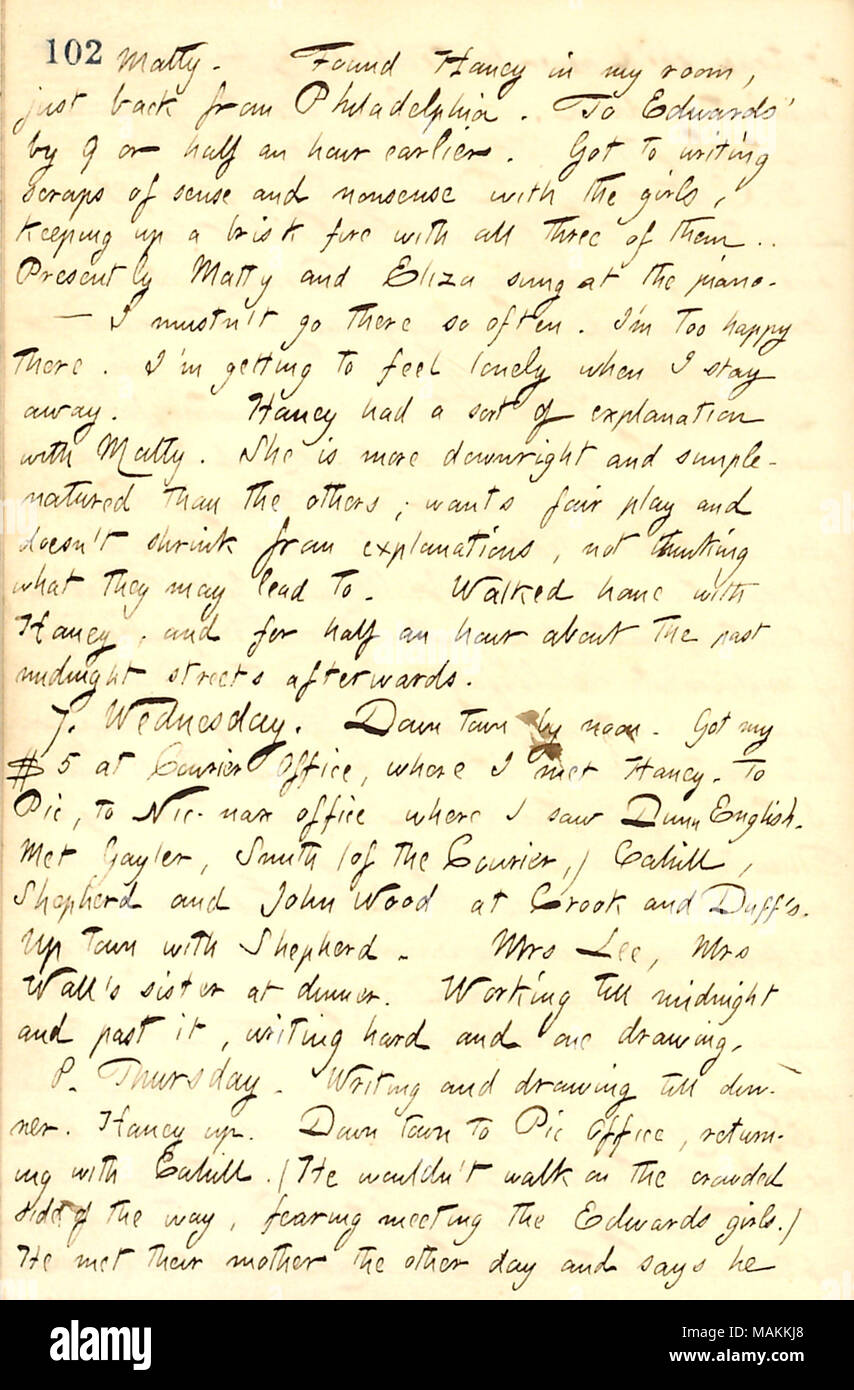 102 Matty. Found Haney in my room,
just back from Philadelphia. To Edwards'
by 9 or half an hour earlier. Got to writing
scraps of sense and nonsense with the girls,
keeping up a brisk fire with all three of them..
Presently Matty and Eliza sung at the piano.
— I mustn't go there so often. I'm too happy
there. I'm getting to feel lonely when I stay
away. Haney had a sort of explanation
with Matty. She is more downright and simple-
natured than the others; wants fair play and
doesn't shrink from explanations, not thinking
what they may lead to. Walked home with
Haney, and for half an hour about the past
midnight streets afterwards.
7. Wednesday. Down town by noon. Got my
$5 at Courier Office, where I met Haney. To
Pic, to Nic-nax office where I saw Dunn English.
Met Gayler, Smith (of the Courier,) Cahill,
Shepherd and John Wood at Crook and Duff's.
Up town with Shepherd. Mrs Lee, Mrs
Wall's sister at dinner. Working till midnight
and past it, writing hard and one drawing.
8. Thursday. Writing and drawing till din-
ner. Haney up. Down town to Pic Office, return-
ing with Cahill. (He wouldn't walk on the crowded
side of the way, fearing meeting the Edwards girls.)
He met their mother the other day and says he
alamy
Image ID: MAKKJ8
www.alamy.com